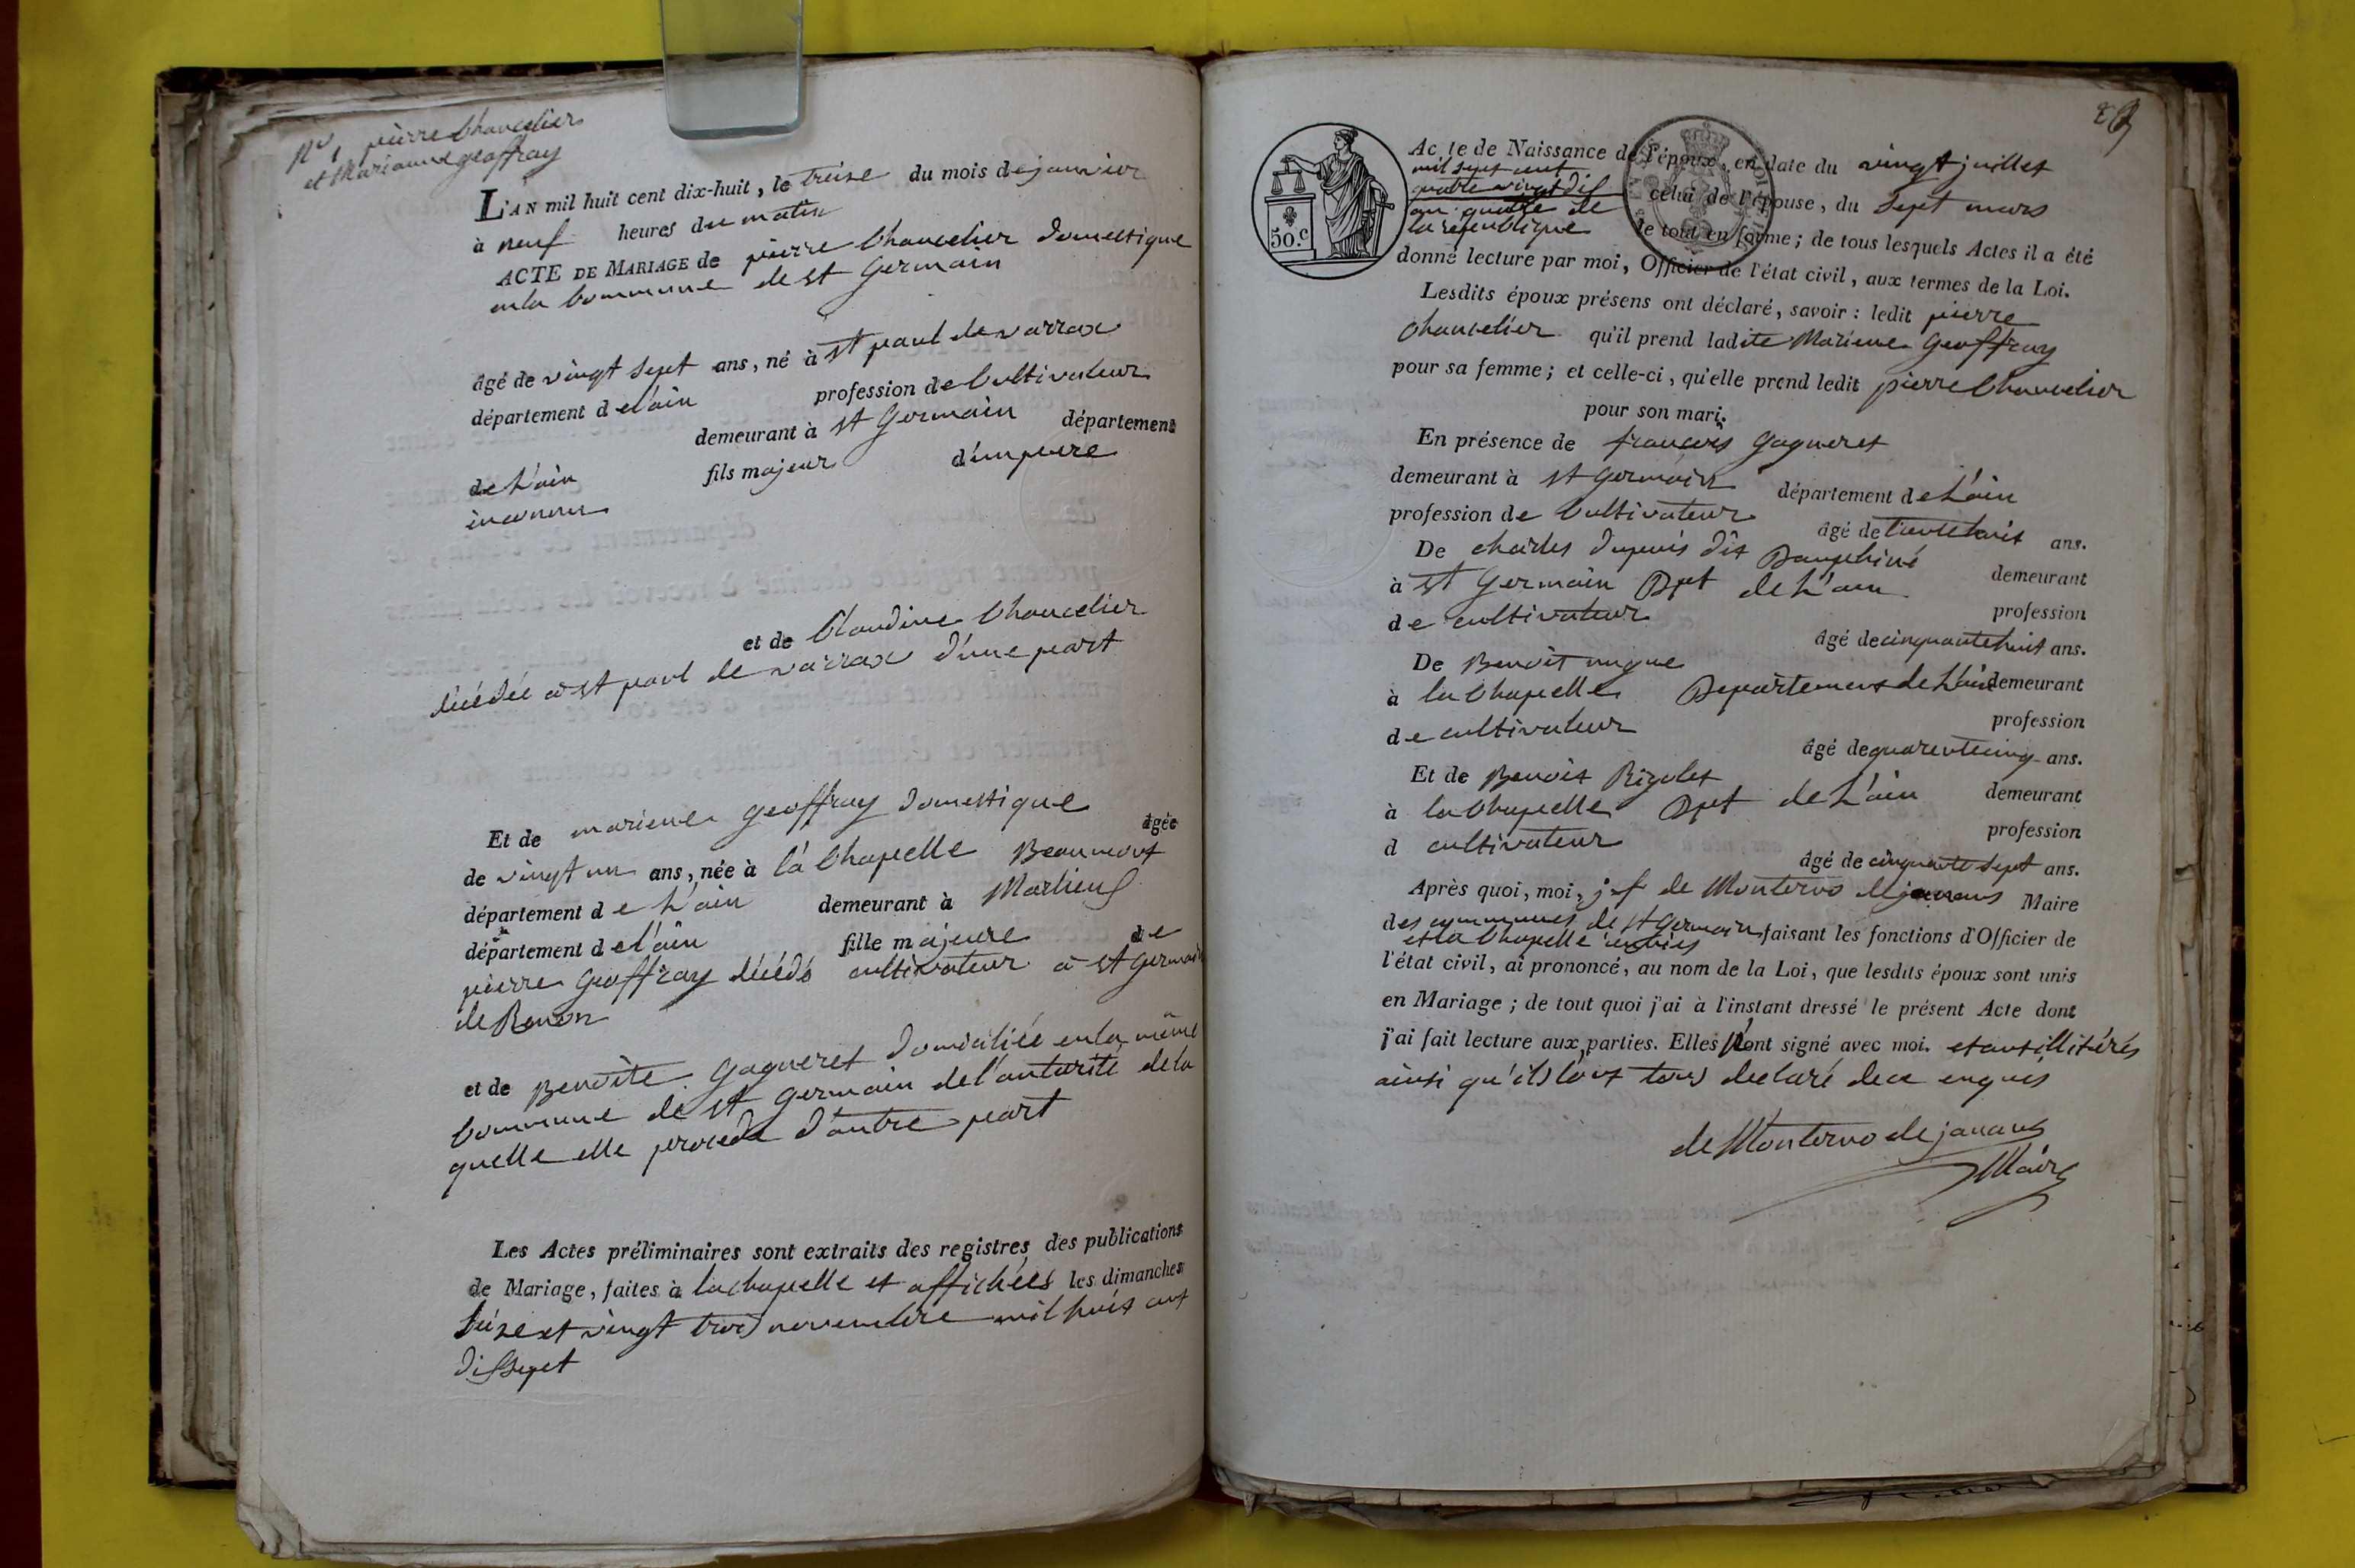 No 1 pierre Chancelier
et Marianne geoffray
L'AN mil huit cent dix-huit, le treise du mois de janvier
à neuf heures du matin
ACTE DE MARIAGE de pierre Chancelier domestique
en la Commune de st Germain
âgé de vingt sept ans, né à st paul de varrax
département de l'ain profession de Cultivateur
demeurant à st Germain département
de L'ain fils majeur d'un pere
inconnu
et de Claudine Chancelier
décédée a st paul de varrax d'une part
Et de marienne geoffray domestique âgée
de vingt un ans, née à la Chapelle Beaumont
département de L'ain demeurant à Marlieux
département de l'ain fille majeure de
pierre geoffray décédé cultivateur a st germain
de Renon
et de Benoite gagneret domiciliée en la même
Commune de st germain de l'autorité de la
quelle elle procede d'autre part
Les Actes préliminaires sont extraits des registres des publications
de Mariage, faites à la chapelle et affichées les dimanches
séize et vingt trois novembre mil huit cent
dissept
50.c
Acte de Naissance de l'époux, en date du vingt juillet
mil sept cent
quatre vingt dix celui de l'épouse, du sept mars
an quatre de
la republique le tout en forme; de tous lesquels Actes il a été
donné lecture par moi, Officier de l'état civil, aux termes de la Loi.
Lesdits époux présens ont déclaré, savoir: ledit pierre
Chancelier qu'il prend ladite Marienne Geoffray
pour sa femme; et celle-ci, qu'elle prend ledit pierre Chancelier
pour son mari.
En présence de francois gagneret
demeurant à st germain département de L'ain
profession de Cultivateur âgé de trente huit ans.
De charles dupuis dit Dauphiné demeurant
à st Germain Dpt de L'ain profession
de cultivateur âgé de cinquante huit ans.
De Benoit nugue demeurant
à la Chapelle Departement de L'ain profession
de cultivateur âgé de quarente cinq ans.
Et de Benoit Rigolet demeurant
à la Chapelle Dpt de L'ain profession
d cultivateur âgé de cinquante sept ans.
Après quoi, moi, j. f. de Montervo de janans Maire
des communes de st Germain
et la Chapelle faisant les fonctions d'Officier de
l'état civil, ai prononcé, au nom de la Loi, que lesdits époux sont unis
en Mariage; de tout quoi j'ai à l'instant dressé le présent Acte dont
j'ai fait lecture aux parties. Elles n'ont signé avec moi. etant illitérés
ainsi qu'ils l'ont tous declaré de ce enquis
de Montervo de janans
Maire